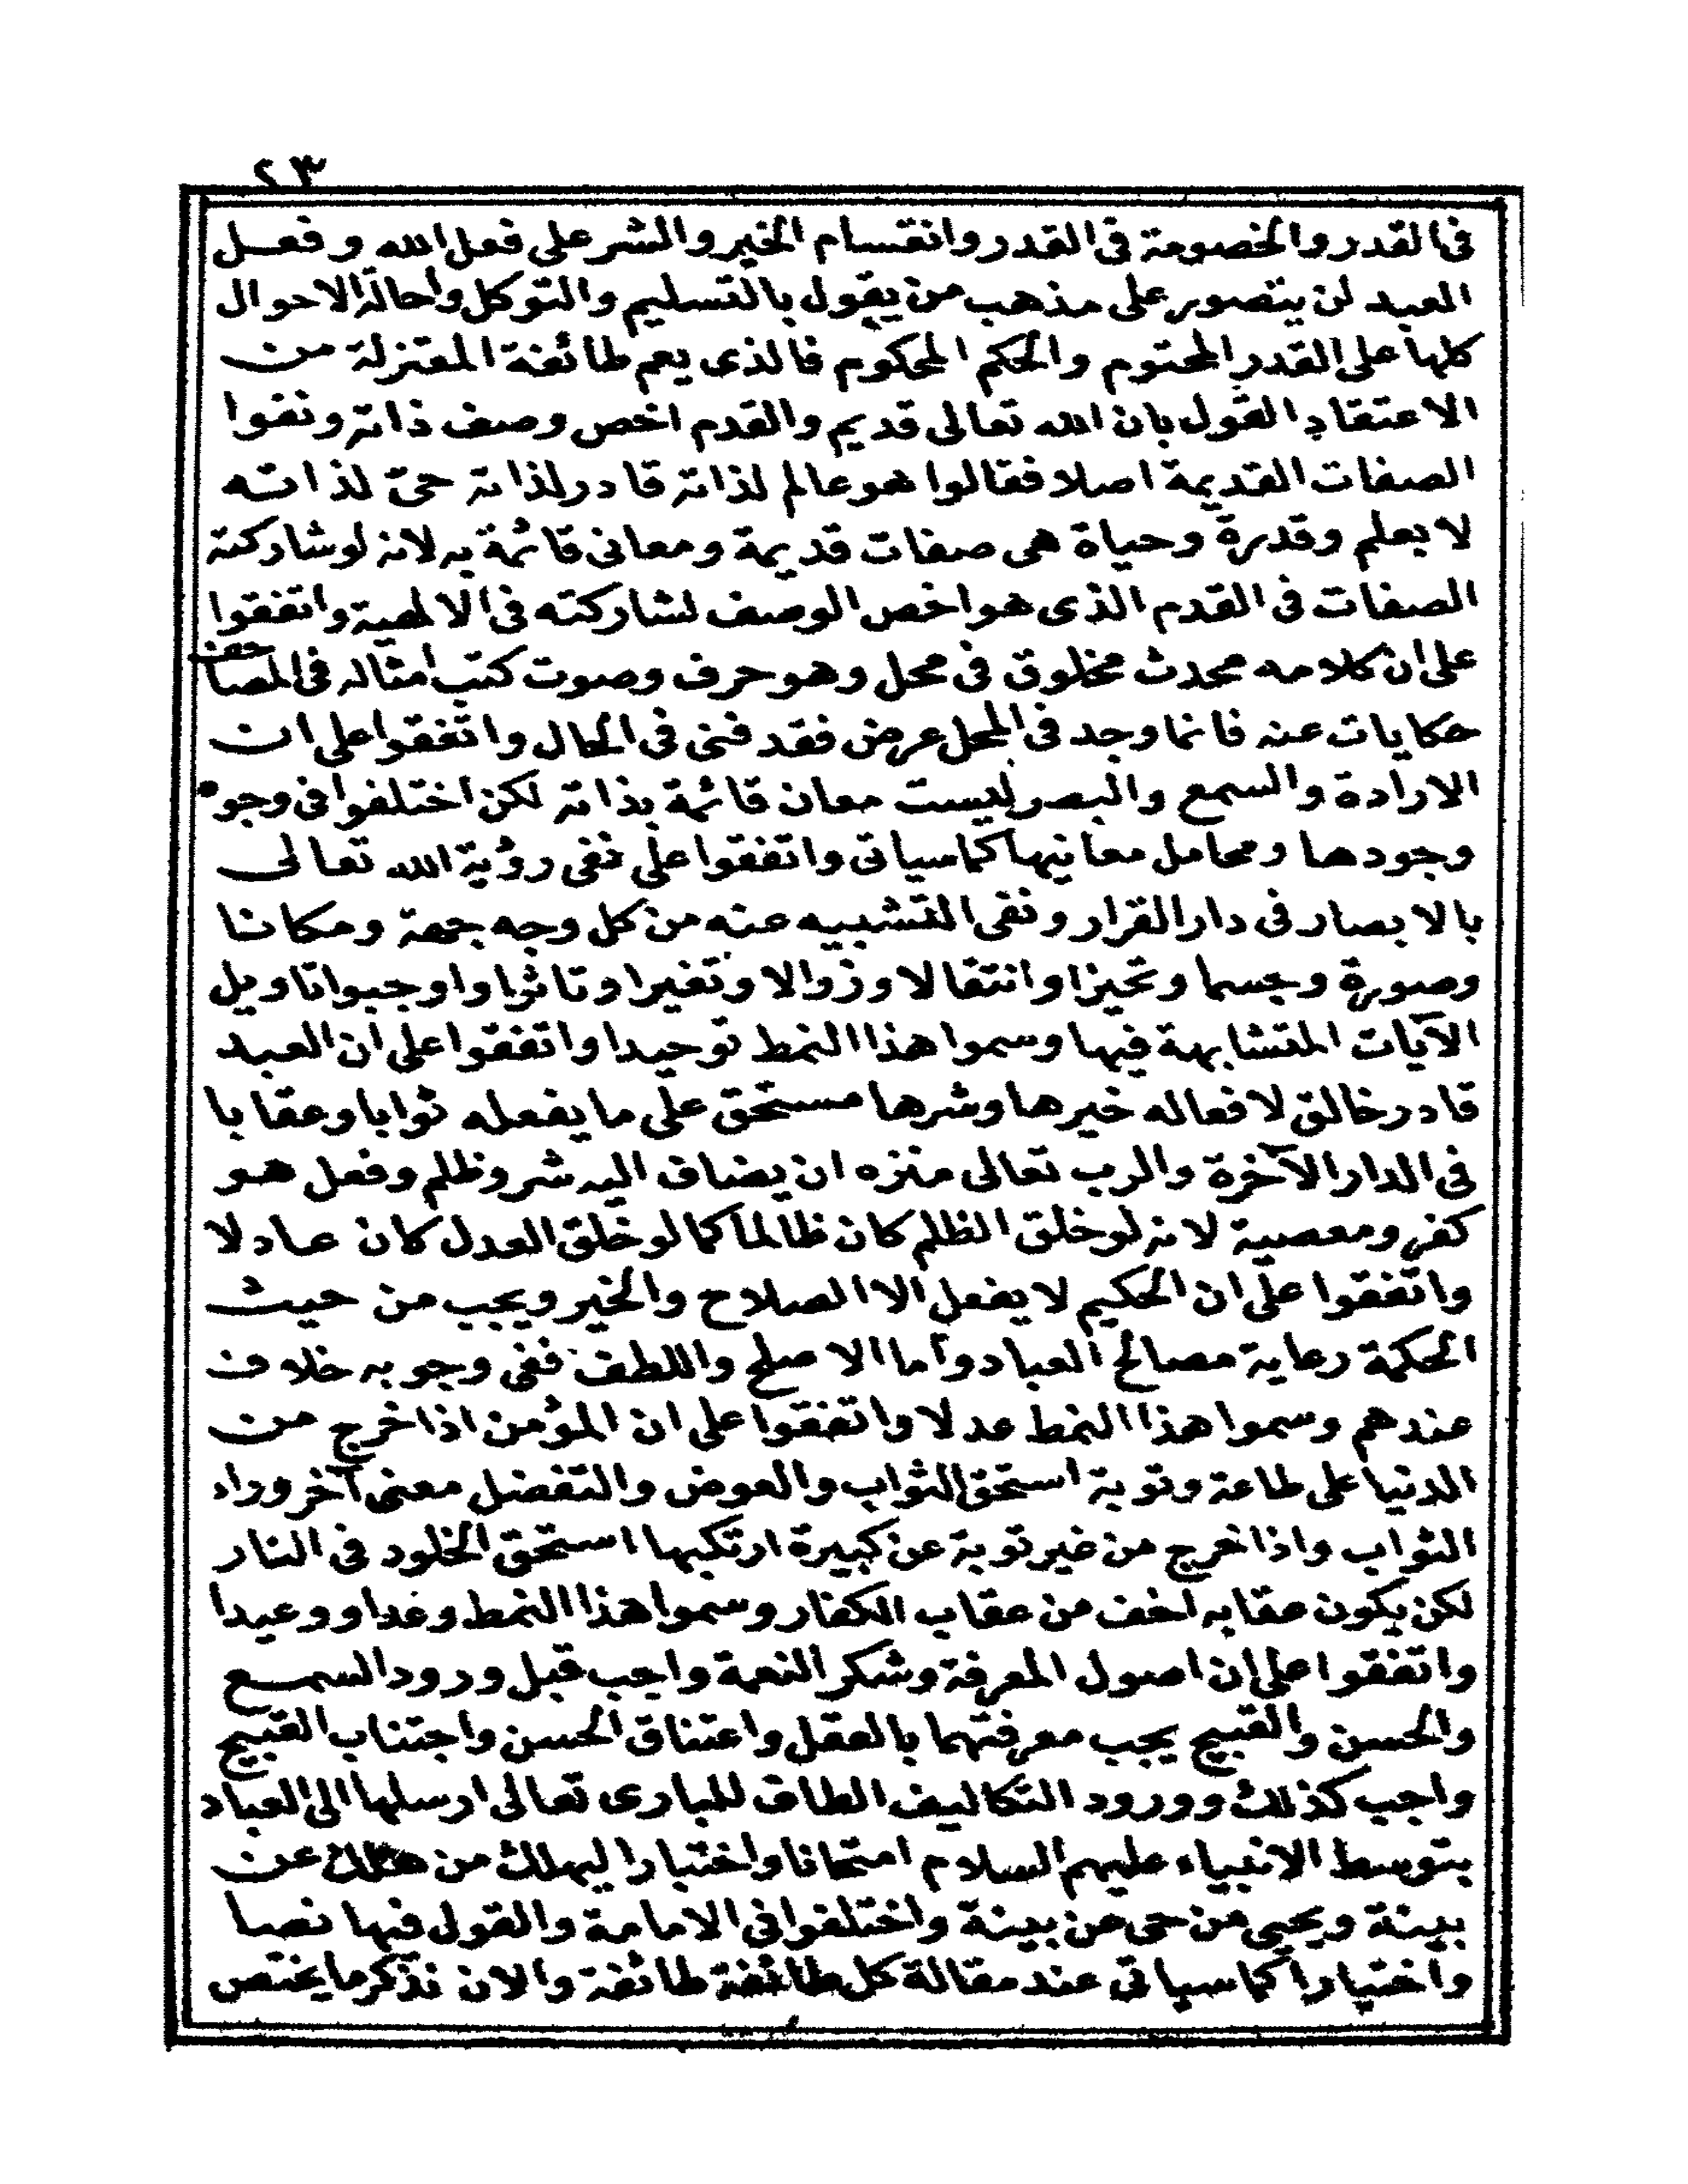 ٢٣
فى القدر والخصومة فى القدر وانقسام الخير والشر على فعل الله وفعل
العبد لن يتصور على مذهب من يقول بالتسليم والتوكل واحالة الاحوال
كلها على القدر المحتوم والحكم المحكوم فالذى يعم طائفة المعتزلة من
الاعتقاد القول بان الله تعالى قديم والقدم اخص وصف ذاته ونفوا
الصفات القديمة اصلا فقالوا هو عالم لذاته قادر لذاته حىّ لذاته
لا بعلم وقدرة وحياة هى صفات قديمة ومعانى قائمة به لانه لو شاركته
الصفات فى القدم الذى هو اخص الوصف لشاركته فى الالهية واتفقوا
على ان كلامه محدث مخلوق فى محل وهو حرف وصوت كتب امثاله فى المصاحف
حكايات عنه فانما وجد فى المحل عرض فقد فنى فى الحال واتفقوا على ان
الارادة والسمع والبصر ليست معان قائمة بذاته لكن اختلفوا فى وجوه
وجودها ومحامل معانيها كما سياتى واتفقوا على نفى رؤية الله تعالى
بالابصار فى دار القرار ونفى التشبيه عنه من كل وجه جهة ومكانا
وصورة وجسما وتحيزا وانتقالا وزوالا وتغيرا وتاثرا واوجبوا تاويل
الآيات المتشابهة فيها وسموا هذا النمط توحيدا واتفقوا على ان العبد
قادر خالق لافعاله خيرها وشرها مستحق على ما يفعله ثوابا وعقابا
فى الدار الآخرة والرب تعالى منزه ان يضاف اليه شر وظلم وفعل هو
كفر ومعصية لانه لو خلق الظلم كان ظالما كما لو خلق العدل كان عادلا
واتفقوا على ان الحكيم لا يفعل الا الصلاح والخير ويجب من حيث
الحكمة رعاية مصالح العباد وأما الاصلح واللطف ففى وجوبه خلاف
عندهم وسموا هذا النمط عدلا واتفقوا على ان المؤمن اذا خرج من
الدنيا على طاعة وتوبة استحق الثواب والعوض والتفضل معنى آخر وراء
الثواب واذا خرج من غير توبة عن كبيرة ارتكبها استحق الخلود فى النار
لكن يكون عقابه اخف من عقاب الكفار وسموا هذا النمط وعدا ووعيدا
واتفقوا على ان اصول المعرفة وشكر النعمة واجب قبل ورود السمع
والحسن والقبيح يجب معرفتهما بالعقل واعتناق الحسن واجتناب القبيح
واجب كذلك وورود التكاليف الطاف للبارى تعالى ارسلها الى العباد
بتوسط الانبياء عليهم السلام امتحانا واختبارا ليهلك من هلك عن
بينة ويحيى من حى عن بينة واختلفوا فى الامامة والقول فيها نصا
واختيارا كما سياتى عند مقالة كل طائفة طائفة والان نذكر ما يختص